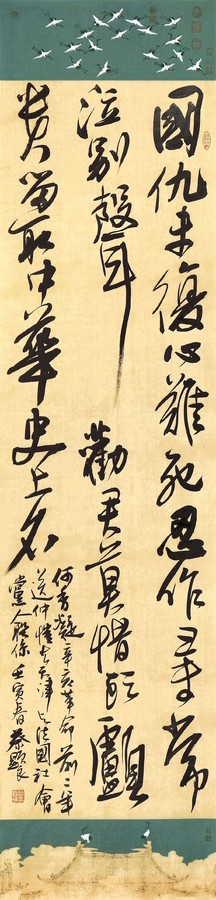 國仇未復心難死忍作尋常
泣別聲勸君莫惜頭顱
貴留取中華史上名
何香凝辛亥革命前二年
送仲愷去天津与法國社會
黨人聯係 壬寅春